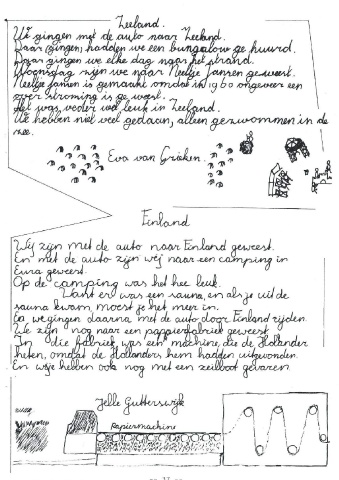 Zeeland.
We gingen met de auto naar Zeeland.
Daar gingen hadden we een bungalow ge huurd.
Daar gingen we elke dag naar het strand.
Woensdag zijn we naar Neltje Jansen geweest.
Neltje Jansen is gemaakt omdat in 1960 ongeveer een
over stroming is ge weest.
Het was verder wel leuk in Zeeland.
We hebben niet veel gedaan, alleen gezwommen in de
zee.
Eva van Grieken.
Finland
Wij zijn met de auto naar Finland geweest.
En met de auto zijn wij naar een camping in
Eura geweest.
Op de camping was het hee leuk.
Want er was een sauna, en als je uit de
sauna kwam, moest je het meer in.
En we gingen daarna met de auto door Finland rijden.
We zijn nog naar een pappierfabriek geweest
In die fabriek was een machine, die de Hollander
heten, omdat de Hollanders hem hadden uitgevonden.
En wije hebben ook nog met een zeilboot gevaren
Jelle Gutterswijk
Papiermachine